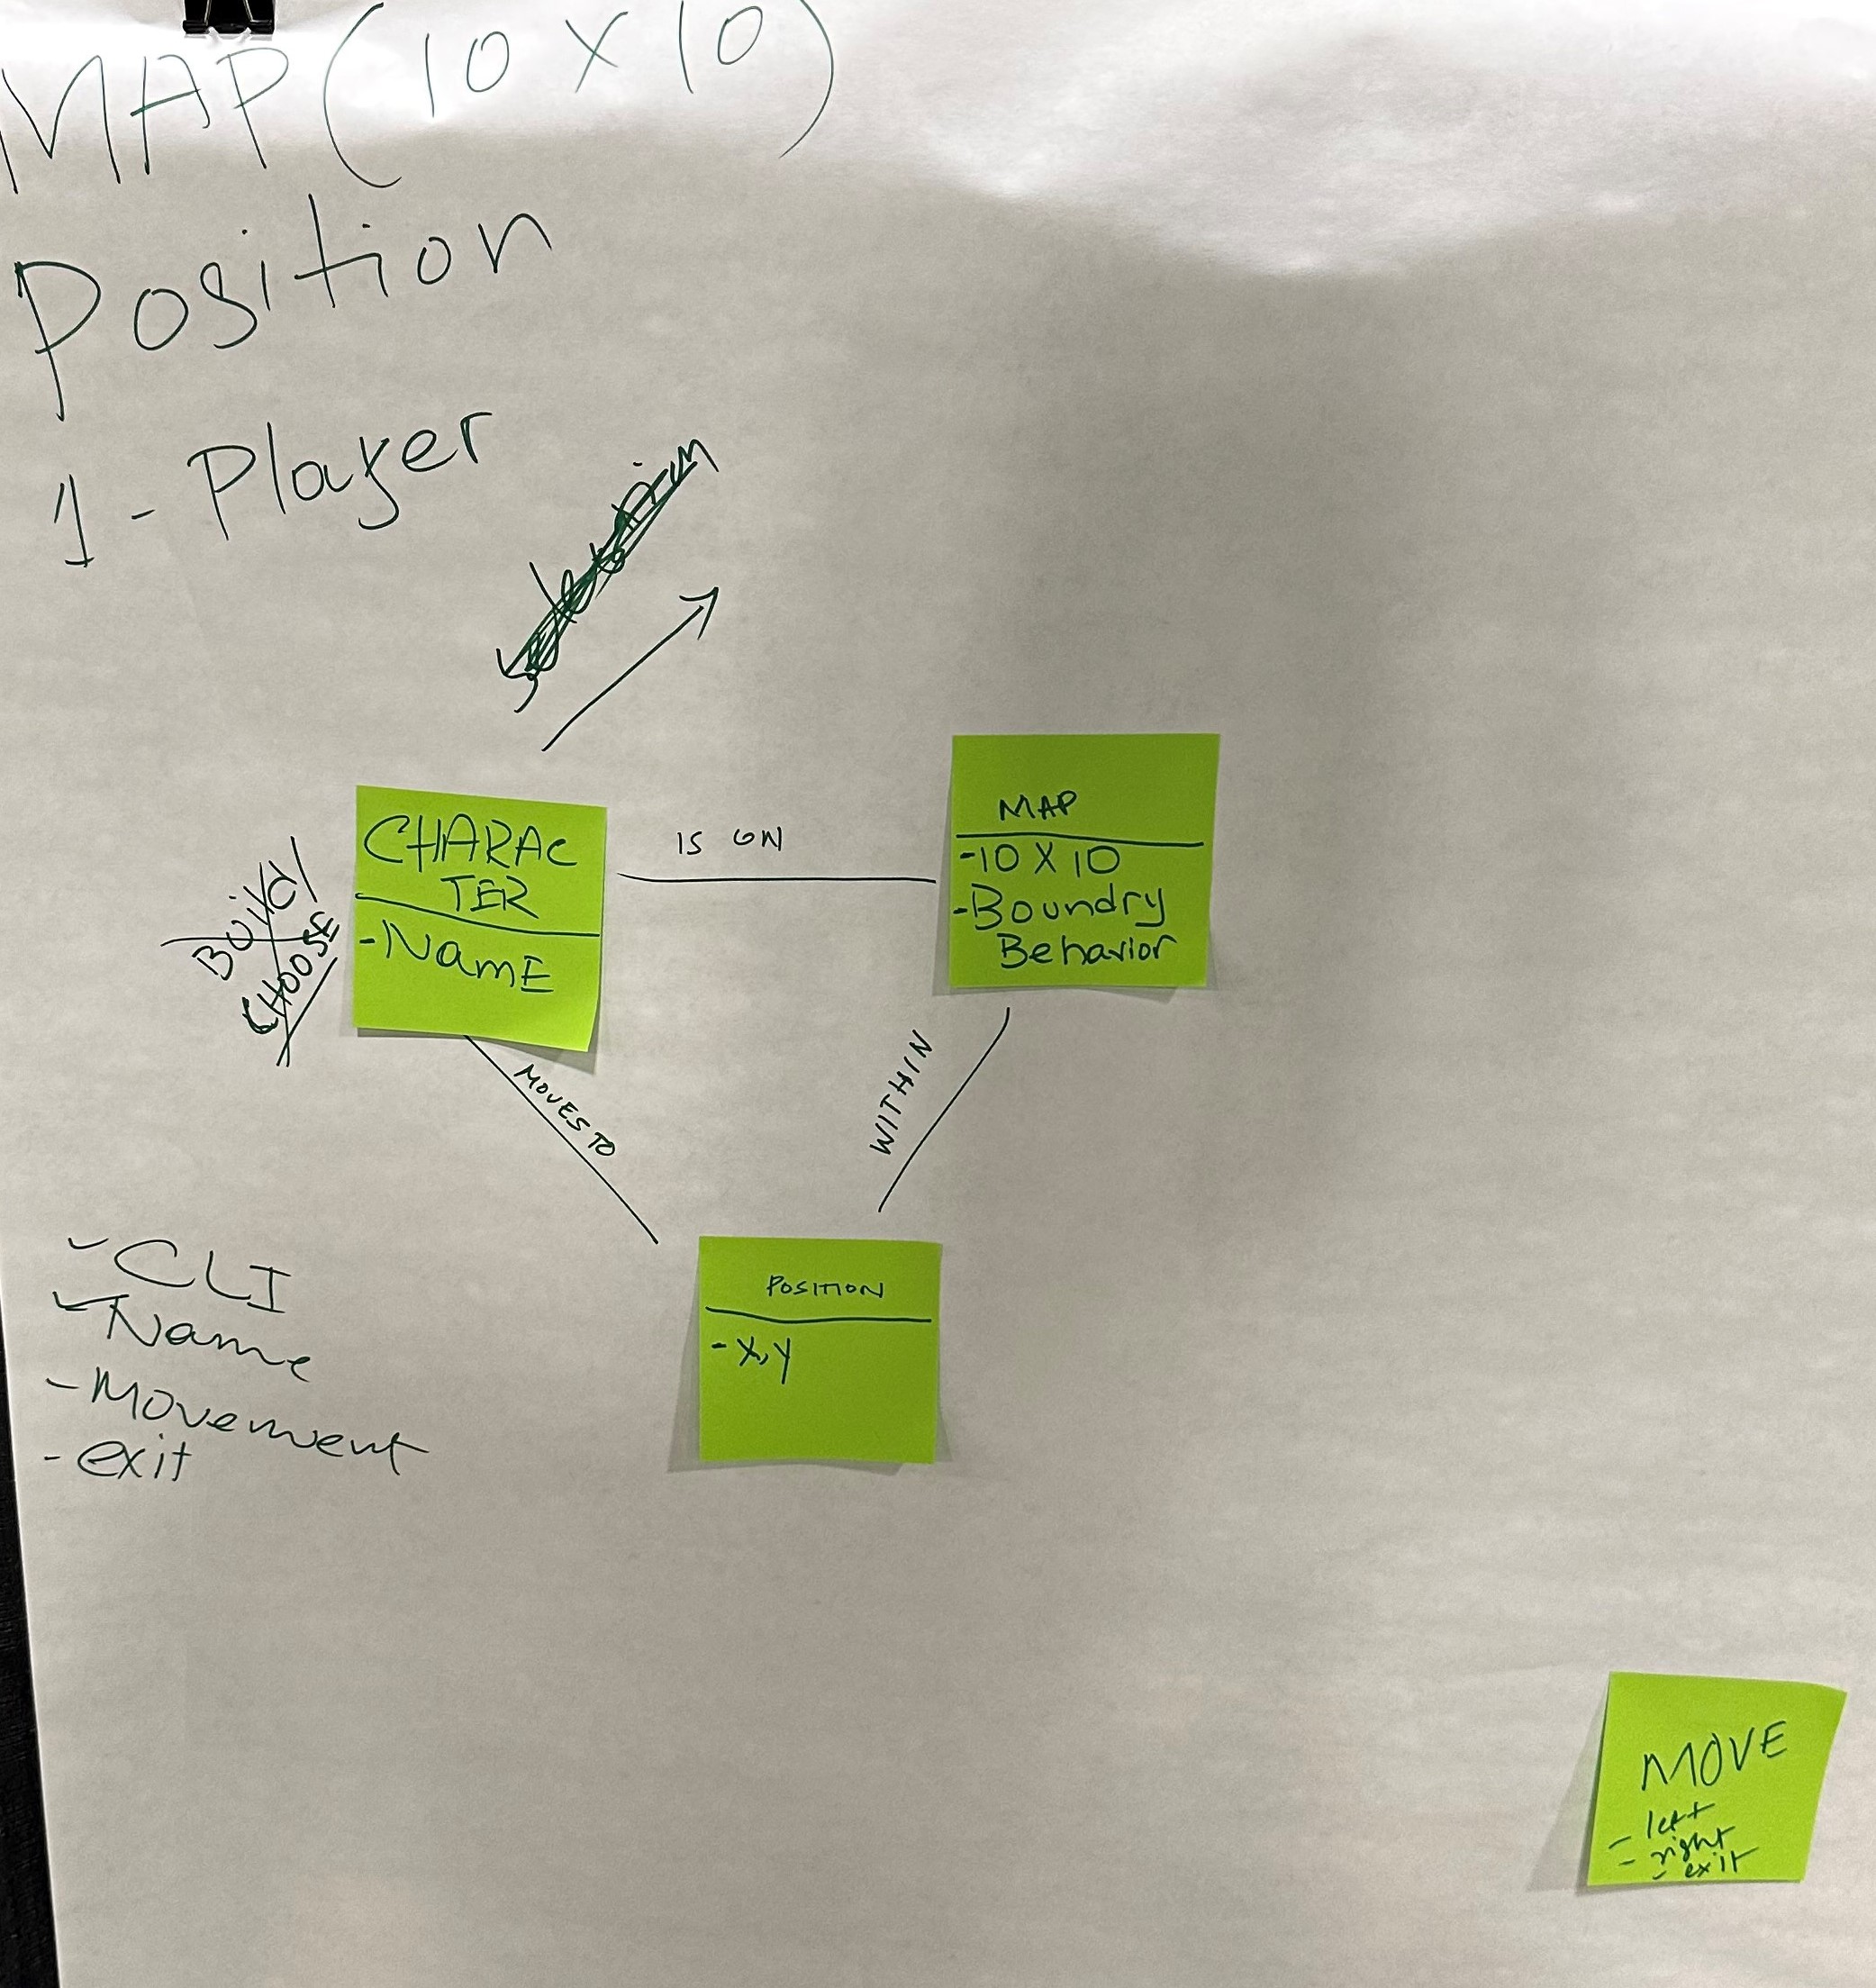 MAP (10 X 10)
Position
1 - Player
CHARAC
TER
- NamE
Build/
CHOOSE
IS ON
MAP
- 10 X 10
- Boundry
Behavior
MOVES TO
WITHIN
POSITION
- X,Y
CLI
Name
- Movement
- exit
MOVE
- left
- right
- exit